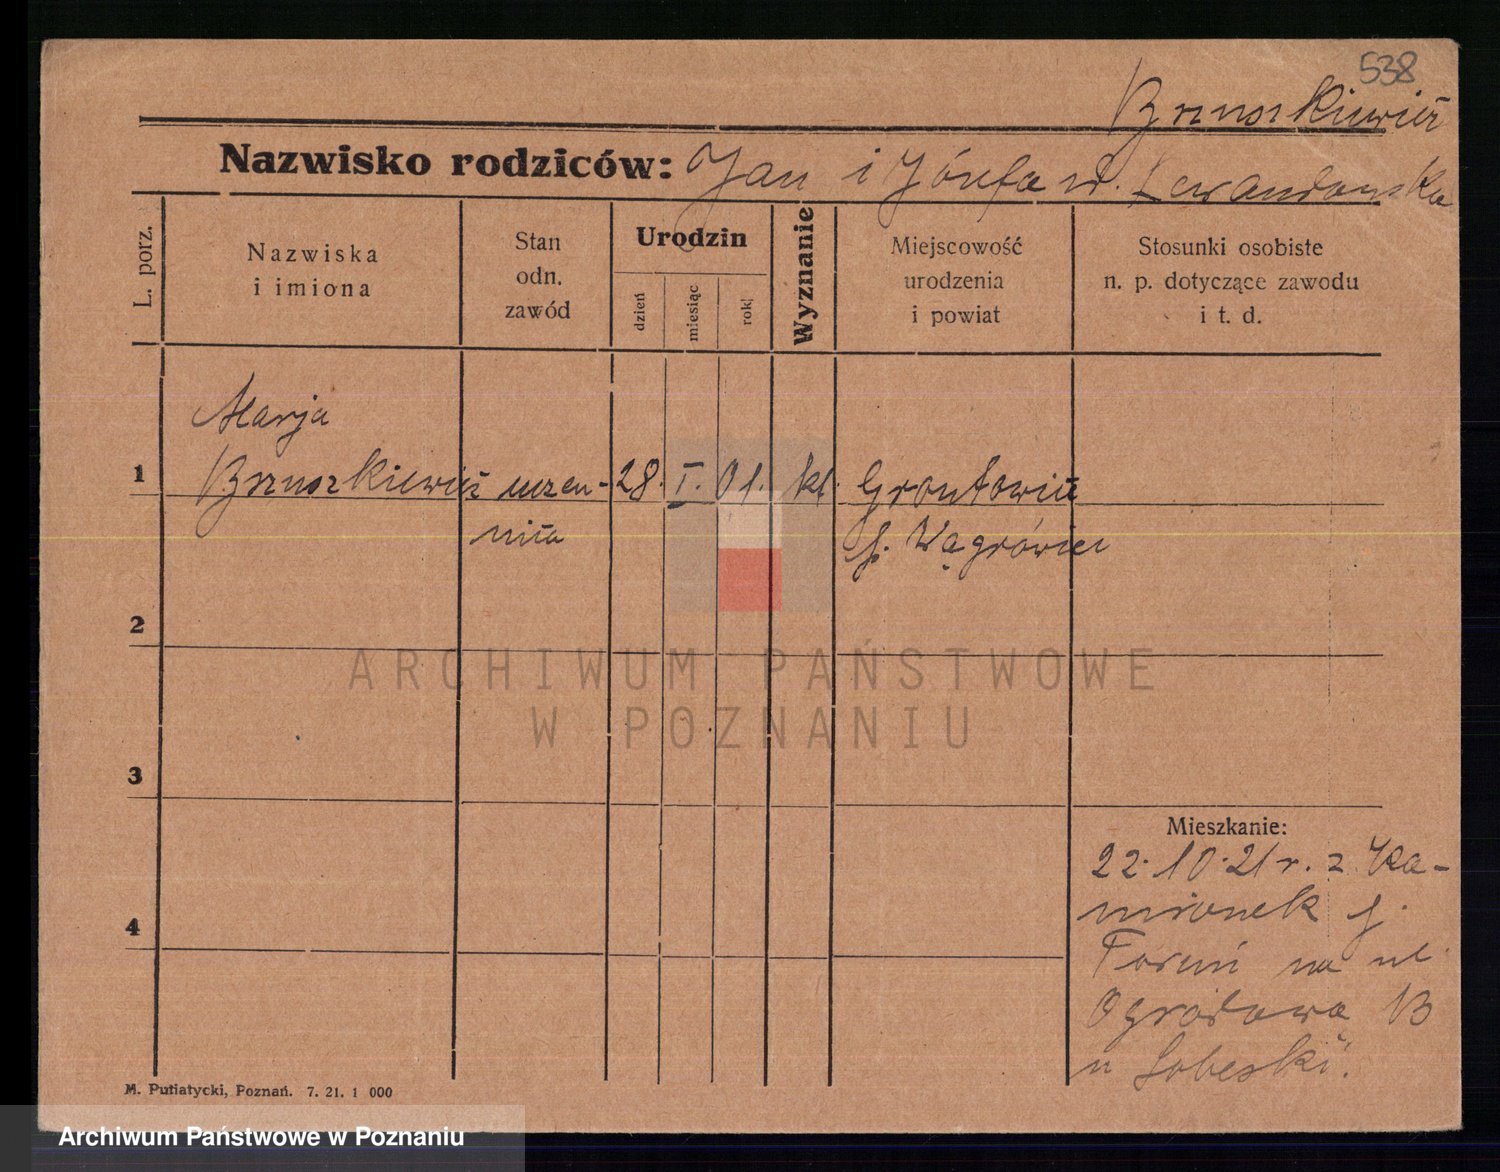 538
Brzuszkiewicz
Nazwisko rodziców: Jan i Józefa d. Lewandowska
L. porz.
Nazwiska
i imiona
Stan
odn.
zawód
Urodzin
dzień
miesiąc
rok
Wyznanie
Miejscowość
urodzenia
i powiat
Stosunki osobiste
n. p. dotyczące zawodu
i t. d.
Marja
1 Brzuszkiewicz uczen- 28. I. 01. kt.
nica
p. Wągrówiec
2
3
4
Mieszkanie:
22.10.21 r. z Ka-
mionek p.
Toruń na ul.
Ogrodowa 13
u Sobeski.
M. Putiatycki, Poznań. 7. 21. 1 000
ARCHIWUM PAŃSTWOWE
W POZNANIU
Archiwum Państwowe w Poznaniu